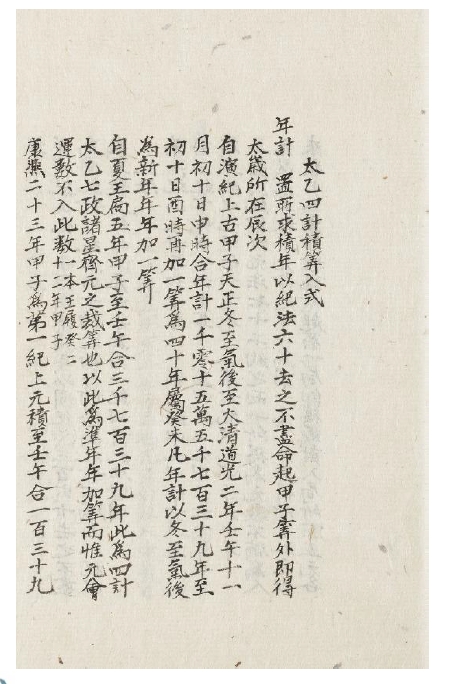 太乙四計積筭入式
年計　置所求積年以紀法六十去之不盡命起甲子筭外即得
太歲所在辰次
自演紀上古甲子天正冬至氣後至大清道光二年壬午十一
月初十日申時合年計一千零十五萬五千七百三十九年至
初十日酉時再加一筭為四十年屬癸未凡年計以冬至氣後
為新年年年加一筭
自夏王扃五年甲子至壬午合三千七百三十九年此為四計
太乙七政諸星齊元之裁筭也以此為準年年加筭而惟元會
運數不入此數一本王履癸二十二年甲子
康熙二十三年甲子為第一紀上元積至壬午合一百三十九